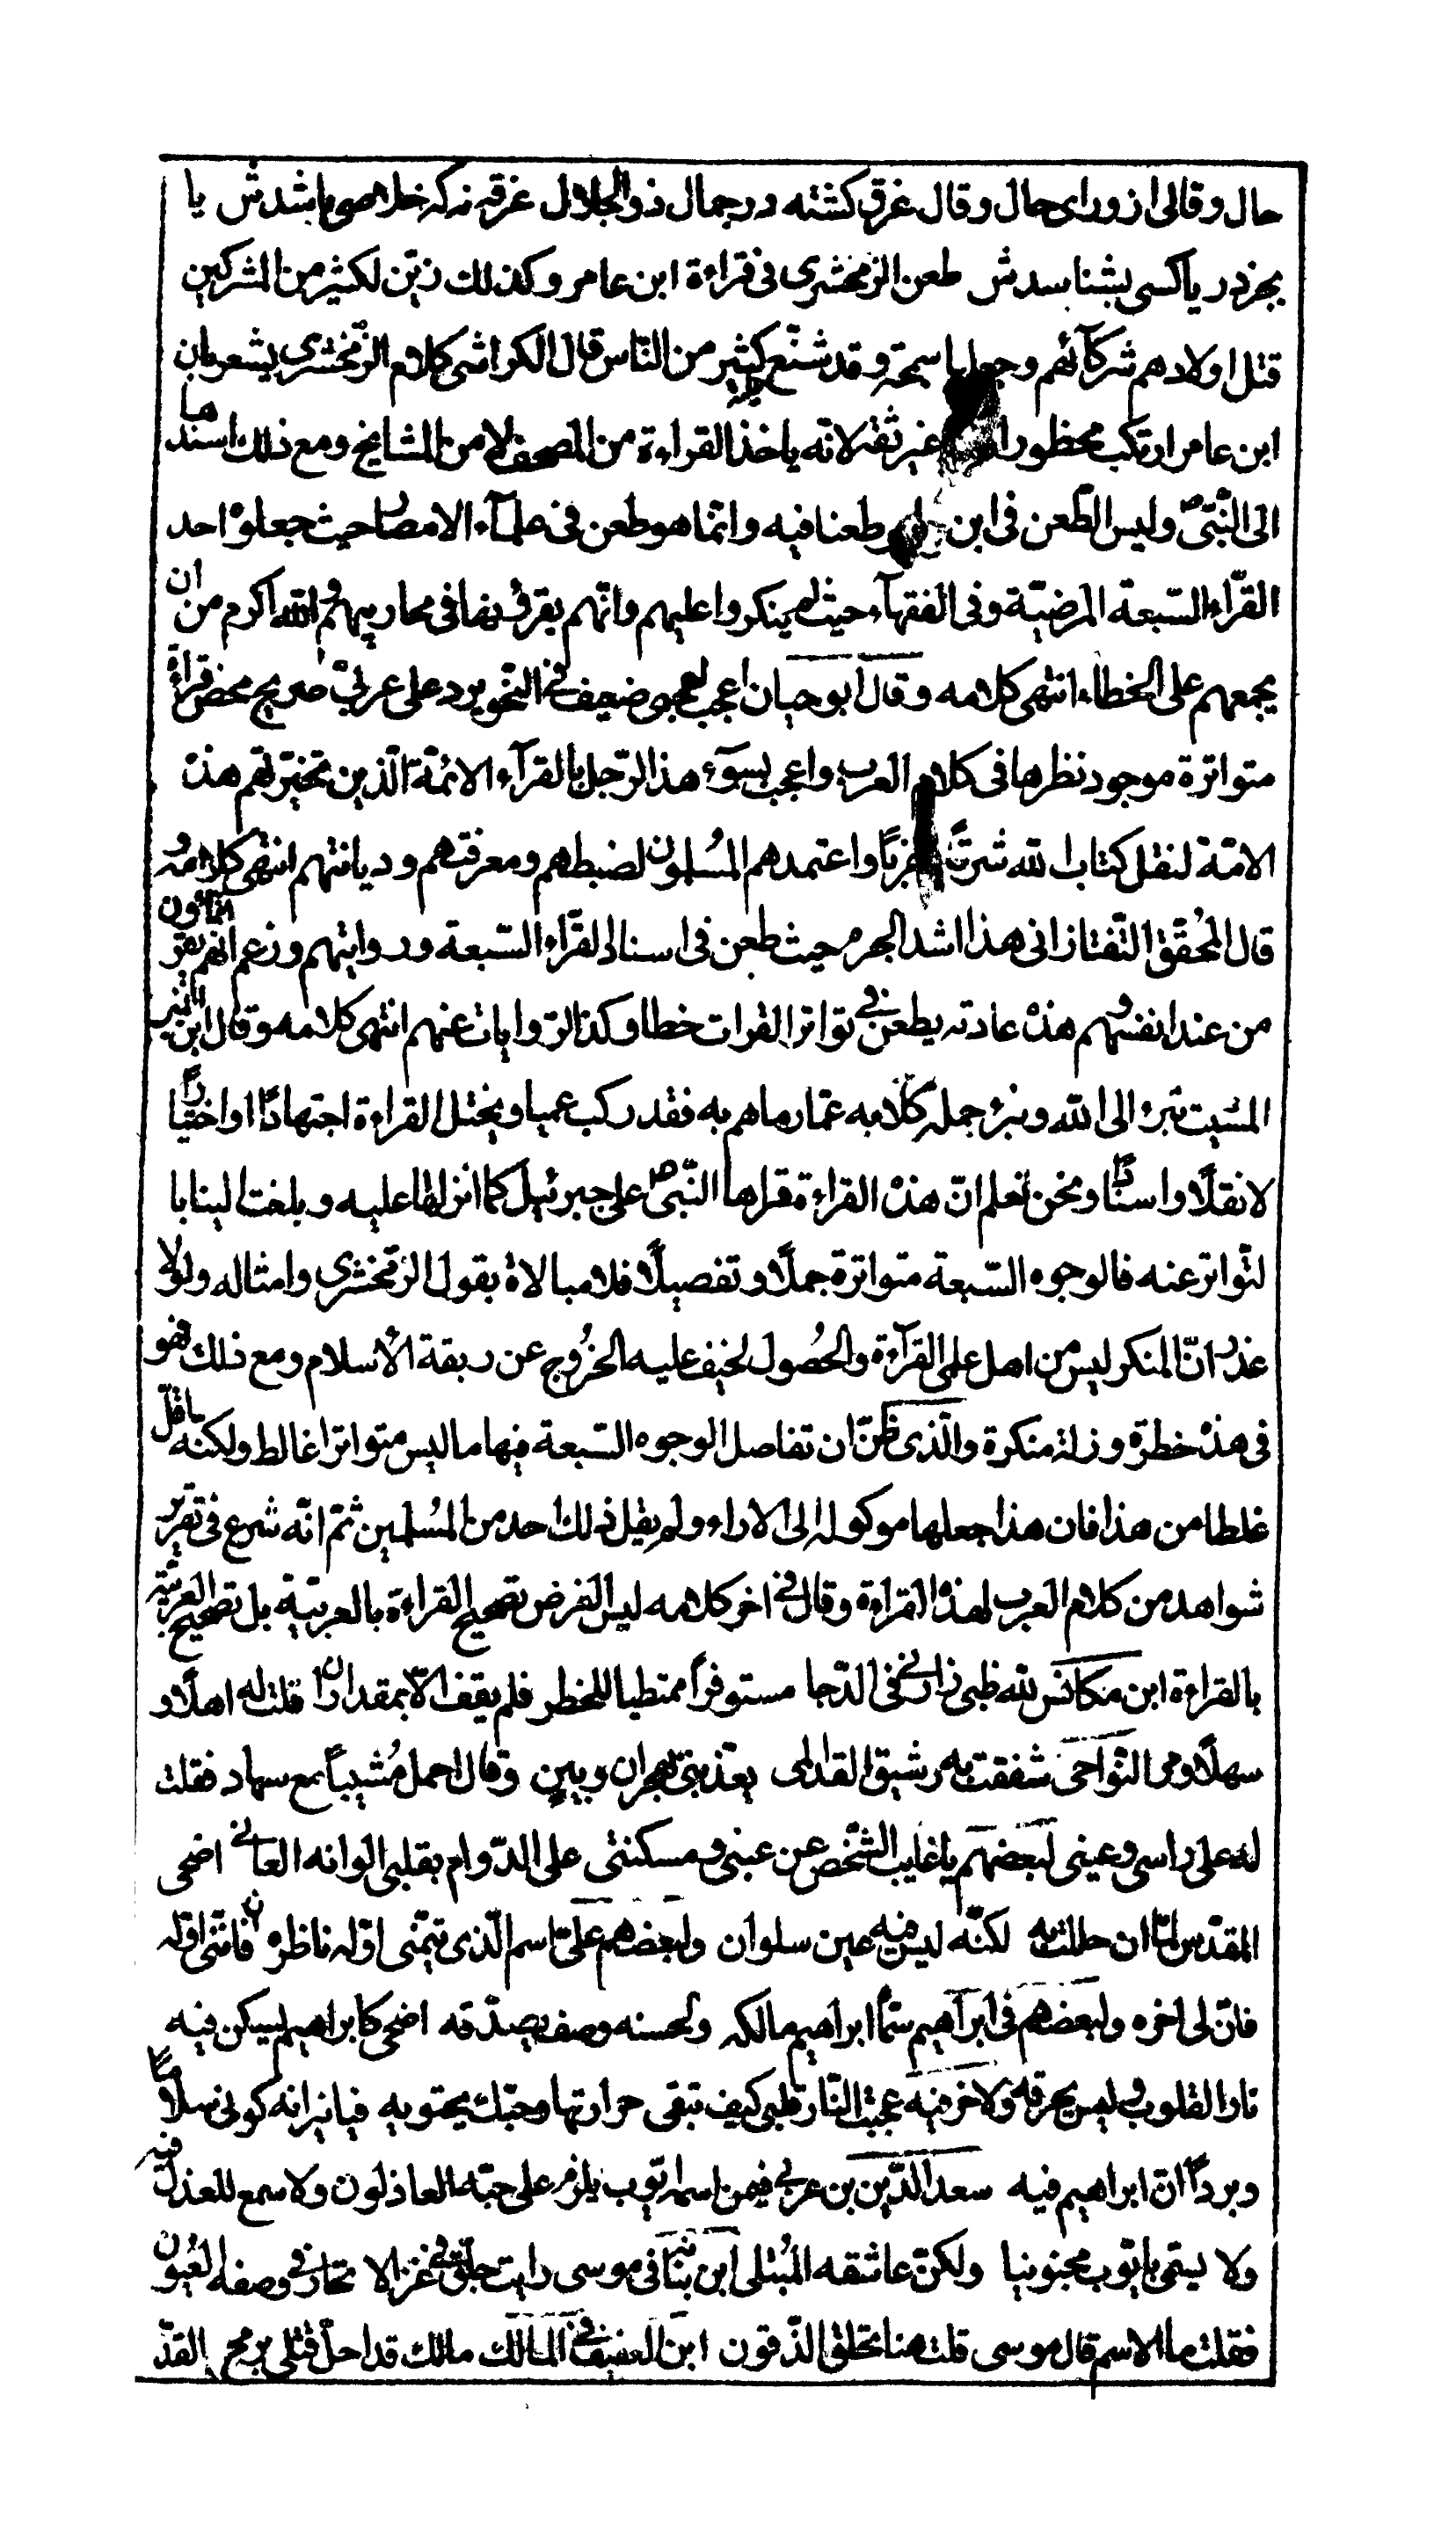 حال و قالی از ورای حال و قال غرق کشته در جمال ذو الجلال غرقه نه که خلاصی باشدش یا
بجز دریا کسی بشناسدش طعن الزمخشری فی قراءة ابن عامر و کذلك زیّن لکثیر من المشرکین
قتل اولادهم شرکآئهم وجعلها سمجة و قد شنّع علیه کثیر من النّاس قال الکواشی کلام الزّمخشری یشعر بان
ابن عامر ارتکب محظورا غیر ثقة لانّه یاخذ القراءة من المصحف لا من المشایخ ومع ذلك اسندها
الی النّبیّ ص ولیس الطّعن فی ابن طعنا فیه وانّما هو طعن فی علمآء الامصار حیث جعلوه احد
القرّاء السّبعة المرضیّة وفی الفقهآء حیث لم ینکروا علیهم وانّهم یقرؤنها فی محاریبهم والله اکرم من ان
یجمعهم علی الخطاء انتهی کلامه وقال ابو حیان اعجب لعجمی ضعیف فی النّحو یرد علی عربیّ صریح محض قراءة
متواترة موجود نظیرها فی کلام العرب واعجب لسوء هذا الرّجل بالقرآء الائمّة الّذین تخیّرتهم هذه
الامّة لنقل کتاب الله شرقًا وغربًا واعتمدهم المسلمون لضبطهم ومعرفتهم ودیانتهم انتهی کلامه
قال المحقّق التّفتازانی هذا اشد الجرم حیث طعن فی اسناد القرّاء السّبعة وروایتهم وزعم انّهم یقرؤن
من عند انفسهم وهذه عادته یطعن فی تواتر القرات خطا وکذا الرّوایات عنهم انتهی کلامه وقال ابن المنیر
نتبرء الی الله ونبرئ جملة کلامه عمّا رماهم به فقد رکب عمیا وتخیّل القراءة اجتهادًا او اختیارًا
لا نقلًا واسنادًا ونحن نعلم انّ هذه القراءة قراها النّبیّ ص علی جبرئیل کما انزلها علیه وبلغت الینا با
لتّواتر عنه فالوجوه السّبعة متواترة جملًا وتفصیلًا فلا مبالاة بقول الزّمخشری وامثاله ولولا
عذر انّ المنکر لیس من اهل علمی القرآءة والاصول لخیف علیه الخروج عن ربقة الاسلام ومع ذلك فهو
فی هذه خطرة وزلة منکرة والّذی ظنّ ان تفاصیل الوجوه السّبعة فیها ما لیس متواترا غالط ولکنّه اقلّ
غلطا من هذا فان هذا جعلها موکولة الی الاراء ولم یقل ذلك احد من المسلمین ثمّ انّه شرع فی تقریر
شواهد من کلام العرب لهذه القراءة وقال فی اخر کلامه لیس الغرض تصحیح القراءة بالعربیّة بل تصحیح العربیّة
بالقراءة ابن مکانس لله ظبی زارنی فی الدّجا مستوفزًا ممتطیا للخطر فلم یقف الّا بمقدار ان قلت له اهلًا و
سهلًا ومر النّواجی شغفت به رشیق القدالمی یعذبنی بهجران وبین وقال احمل مشیبًا مع سهاد فقلت
له علی راسی وعینی لبعضهم یا غایب الشّخص عن عینی ومسکنه علی الدّوام بقلبی الواله العانی اضحی
المقدّس لمّا ان حللت به لکنّه لیس فیه عین سلوان ولبعضهم علیّ اسم الّذی تیّمنی اوّله ناظره ان فاتنی اوّله
فانّ لی اخره ولبعضهم فی ابراهیم سمّا ابراهیم مالکه ولحسنه وصف یصدّقه اضحی کابراهیم یسکن فی
نار القلوب ولیس تحرقه ولاخر فیه عجبت النار قلبی کیف تبقی حرارتها وحبّك یحتویه فیا نیرانه کونی سلامًا
وبردًا انّ ابراهیم فیه سعد الدّین بن عربی فیمن اسمه ایّوب یلوم علی حبّه العاذلون ولا سمع للعذل فیه
ولا یسمّی بایّوب محبوبنا ولکنّ عاشقه المبتلی ابن نباتة فی موسی رایت فی جلّق غزالا تحار فی وصفه العیون
فقلت ما الاسم قال موسی قلت هنا تحلق الذّقون ابن العفیف فی المالك مالك قد احلّ قتلی برمح القدّ